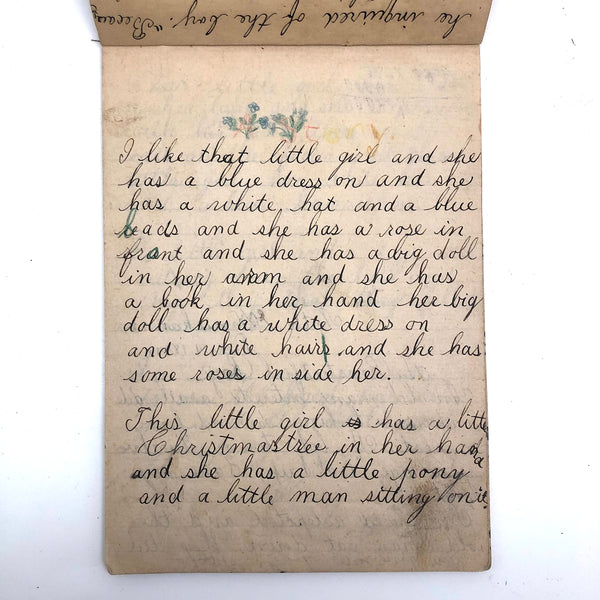 he inquired of the boy. "Becau
I like that little girl and she
has a blue dress on and she
has a white hat and a blue
beads and she has a rose in
front and she has a big doll
in her arm and she has
a book in her hand her big
doll has a white dress on
and white hairs and she has
some roses in side her.
This little girl is has a little
Christmastree in her hand
and she has a little pony
and a little man sitting on it